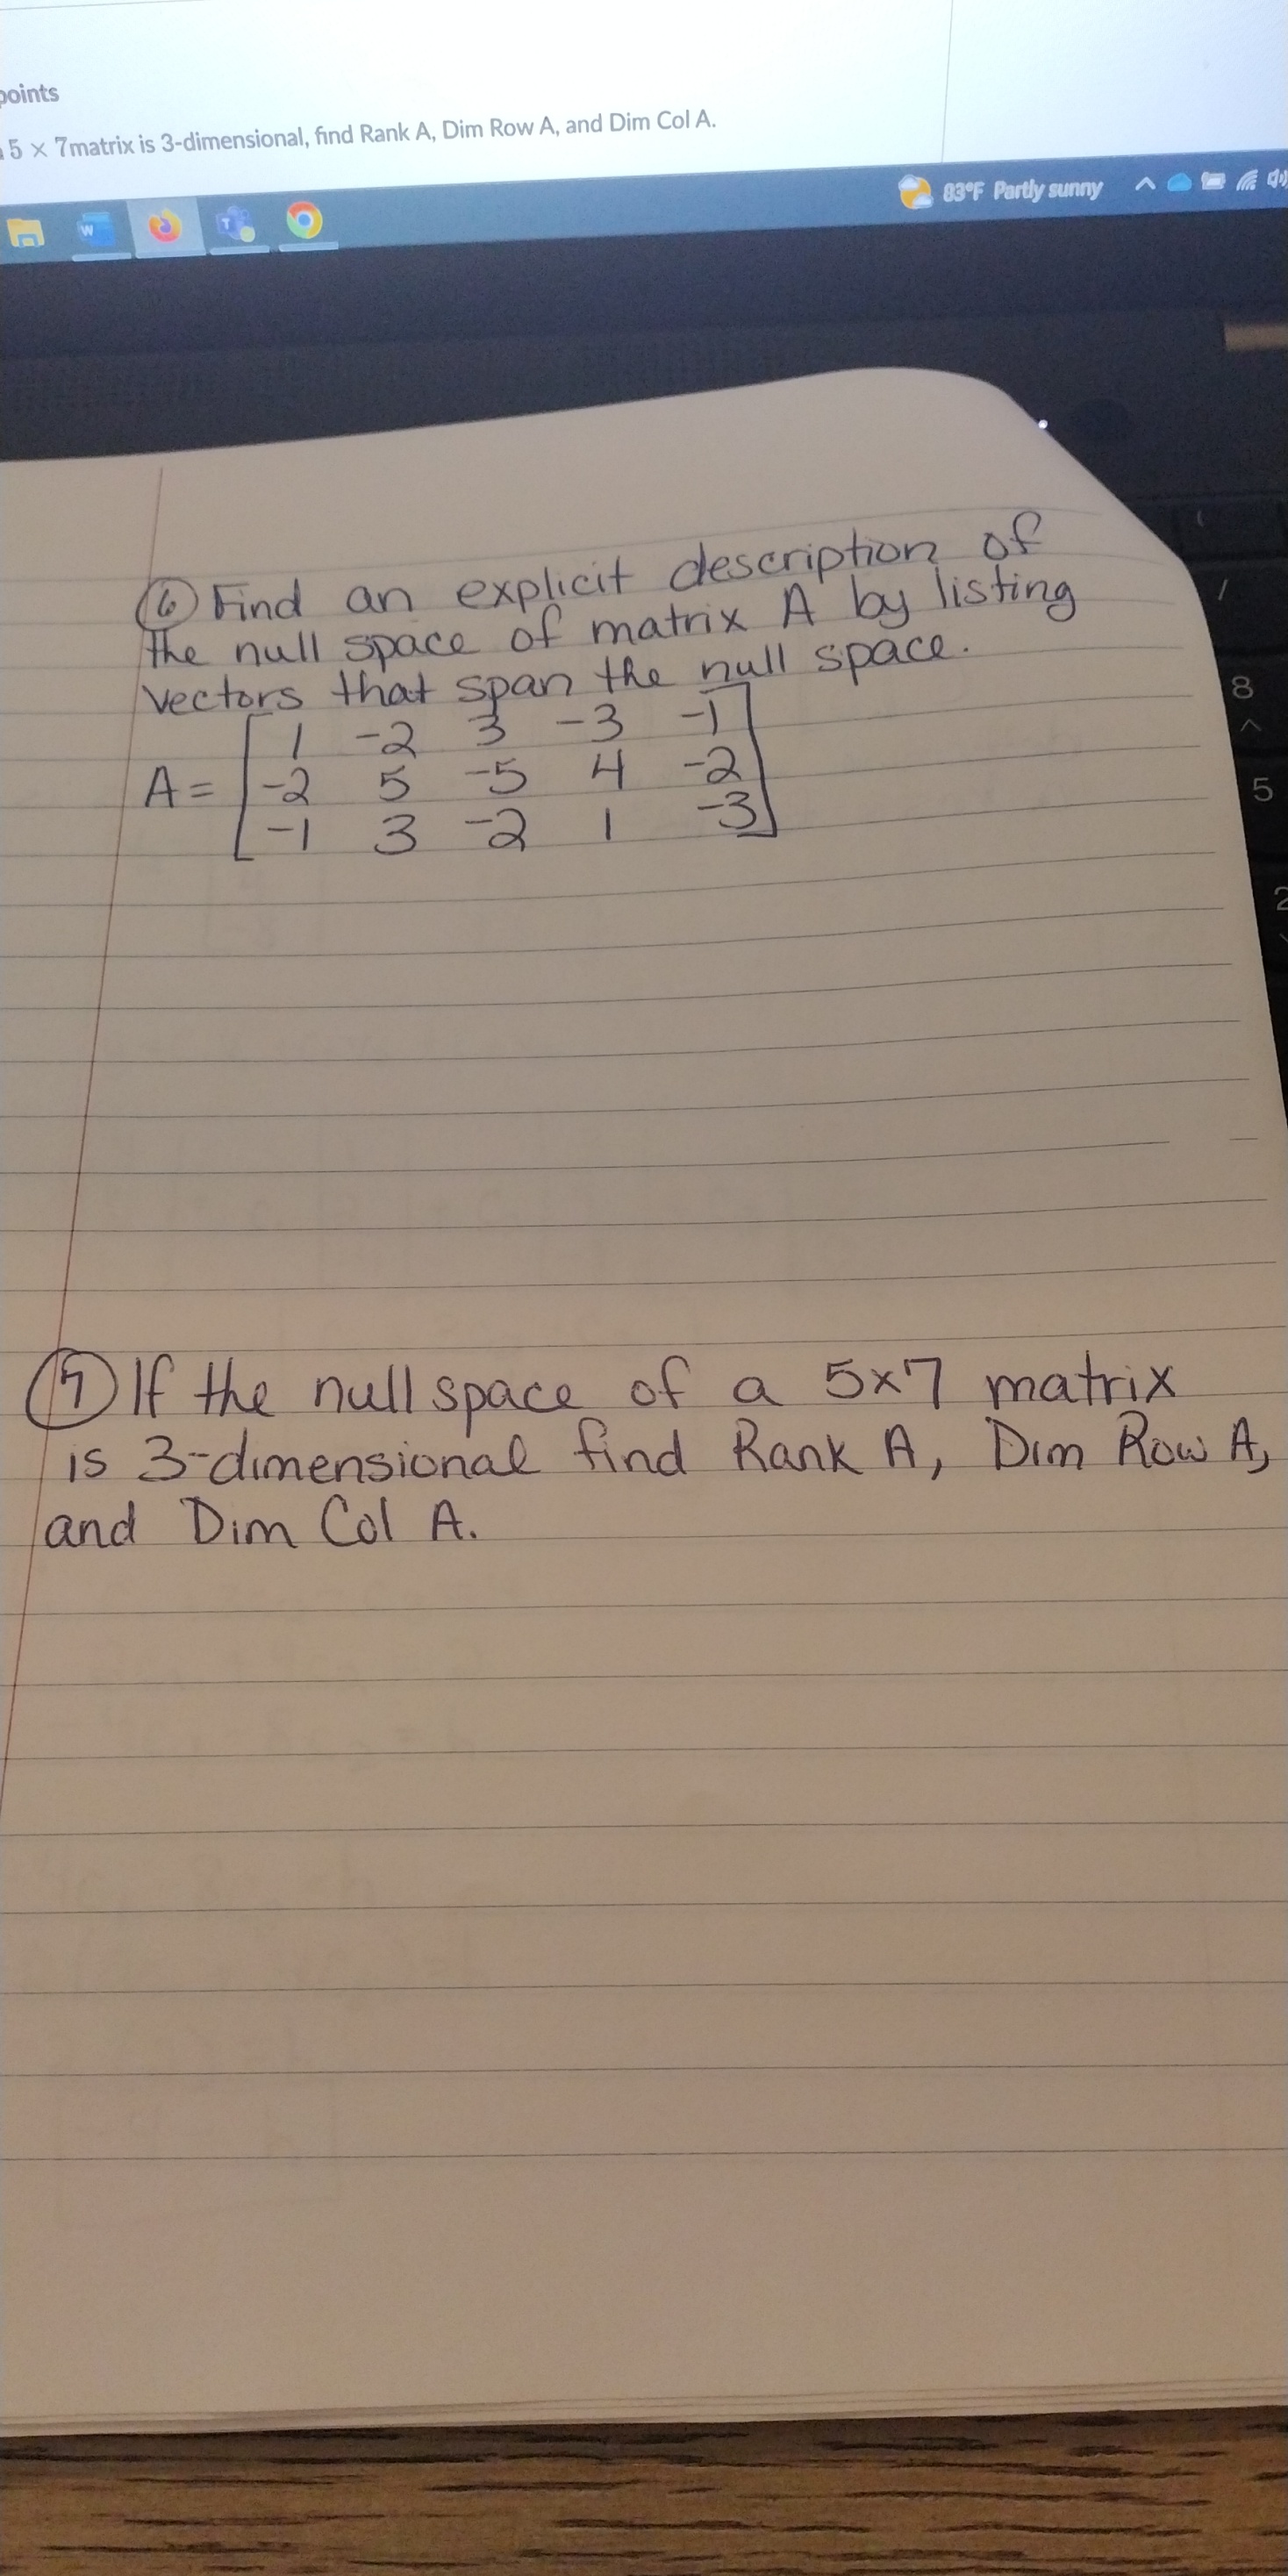 points
5 × 7matrix is 3-dimensional, find Rank A, Dim Row A, and Dim Col A.
83°F Partly sunny
⑥ Find an explicit description of
the null space of matrix A by listing
vectors that span the null space.
1 -2 3 -3 -1
A = -2 5 -5 4 -2
-1 3 -2 1 -3
8
5
2
⑦ If the null space of a 5x7 matrix
is 3-dimensional find Rank A, Dim Row A,
and Dim Col A.